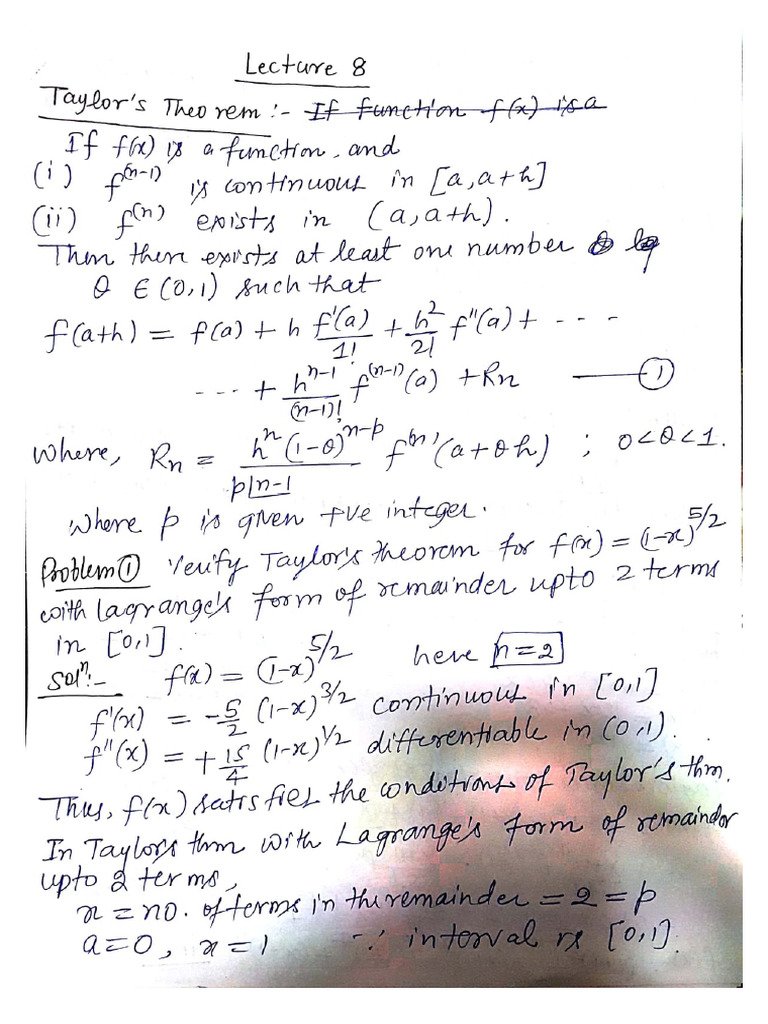 Lecture 8
Taylor's Theorem :- If function f(x) is a
If f(x) is a function, and
(i) f^(n-1) is continuous in [a, a+h]
(ii) f^(n) exists in (a, a+h).
Then there exists at least one number
θ ∈ (0,1) such that
f(a+h) = f(a) + h f'(a)/1! + h²/2! f''(a) + - - -
- - - + h^(n-1)/(n-1)! f^(n-1)(a) + Rn —— ①
Where, Rn = h^n (1-θ)^(n-p) / p|n-1 f^(n)(a+θh) ; 0<θ<1.
where p is given +ve integer.
Problem ① Verify Taylor's theorem for f(x) = (1-x)^5/2
with Lagrange's form of remainder upto 2 terms
in [0,1].
Solⁿ:- f(x) = (1-x)^5/2 here n=2
f'(x) = -5/2 (1-x)^3/2 continuous in [0,1]
f''(x) = +15/4 (1-x)^1/2 differentiable in (0,1).
Thus, f(x) satisfies the conditions of Taylor's thm.
In Taylor's thm with Lagrange's form of remaindor
upto 2 terms,
n = no. of terms in the remainder = 2 = p
a=0, x=1 ∵ interval is [0,1].